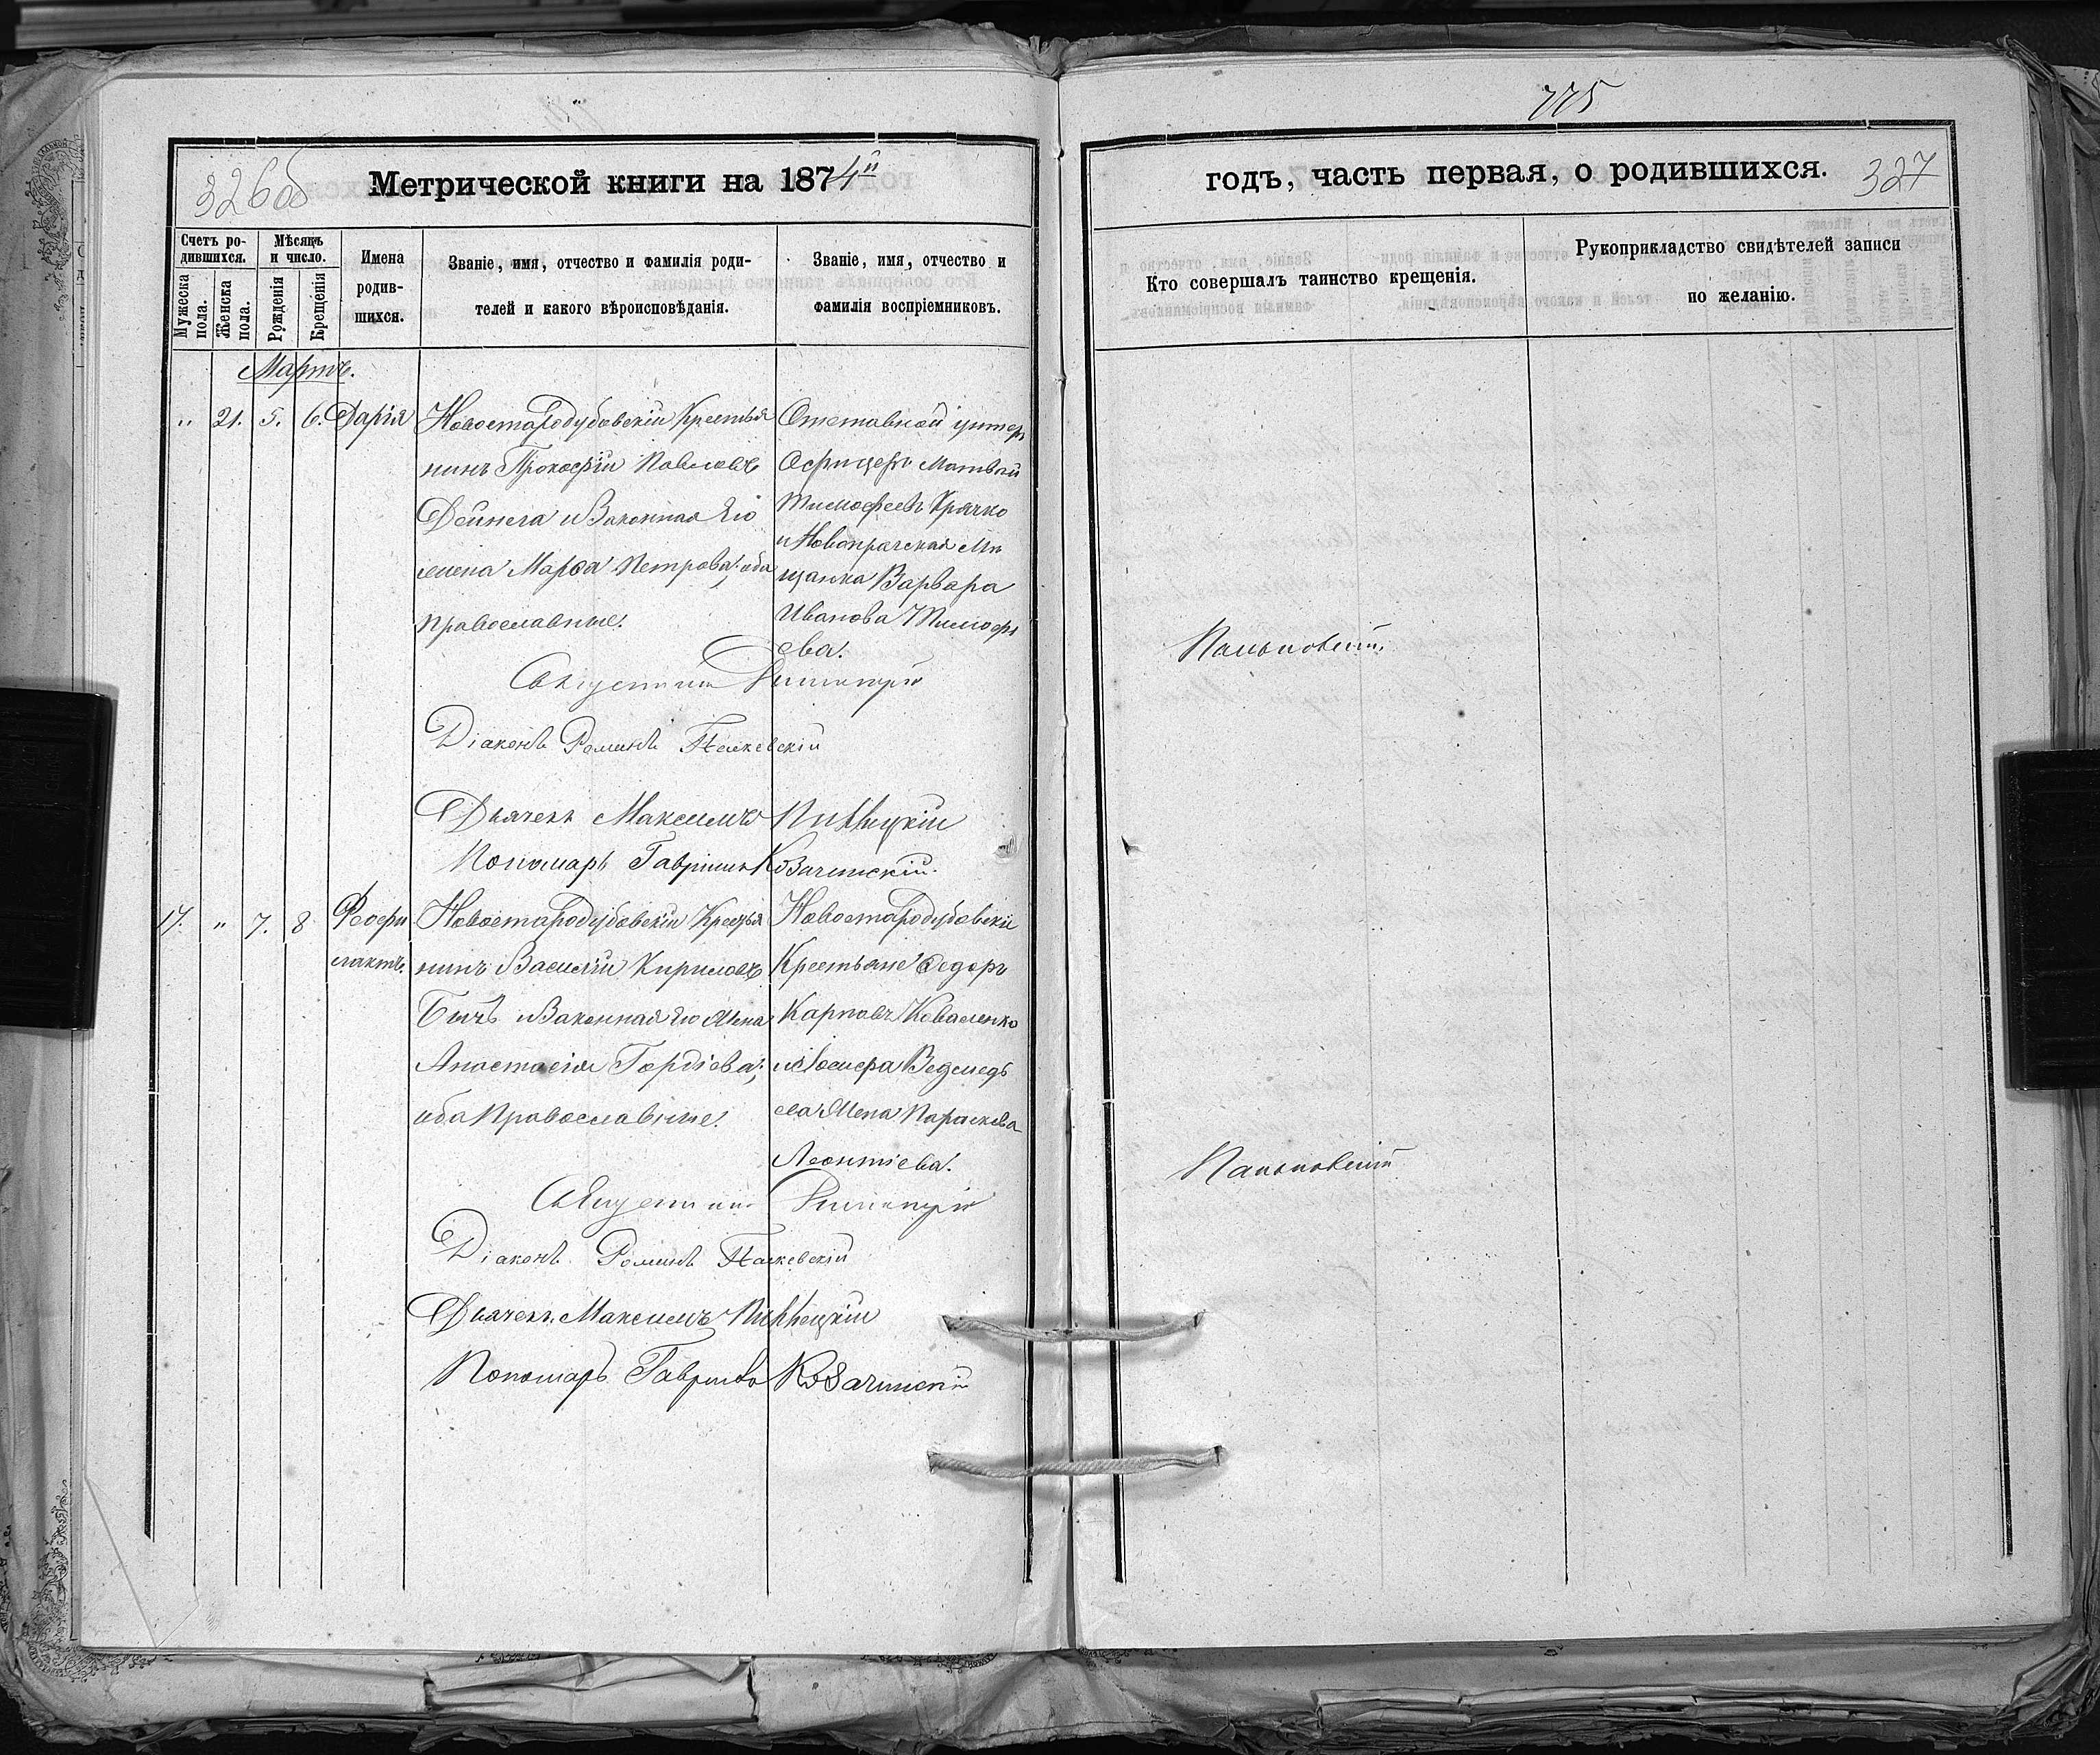 326 об
Метрической книги на 1874й
Счетъ ро-
дившихся.
Мужеска
пола.
Женска
пола.
Мѣсяцъ
и число.
Рожденія
Крещенія
Имена
родив-
шихся.
Званіе, имя, отчество и фамилія роди-
телей и какого вѣроисповѣданія.
Званіе, имя, отчество и
фамилія воспріемниковъ.
Мартъ.
" 21. 5. 6. Дарія
Новостародубовскій Крестья
нинъ Прокофій Павловъ
Дейнега и Законная Его
жена Марѳа Петрова; оба
православные.
Отставной унтеръ
Офицеръ Матвѣй
Тимофеевъ Крячко
и Новопражская Мѣ
щанка Варвара
Иванова Тимофе
ева.
Священникъ Димитрій
Діаконъ Романъ
Дьячекъ Максимъ
Пономарь Гавріилъ Козачинскій.
17. " 7. 8 Феофи
лактъ.
Новостародубовскій Крестья
нинъ Василій Кириловъ
Бичъ и Законная Его Жена
Анастасія Гордіева;
оба Православные.
Новостародубовскіе
Крестьяне Федоръ
Карповъ Коваленко
и Іосифа Ведмедь
ева Жена Параскева
Леонтіева.
Священникъ Димитрій
Діаконъ Романъ
Дьячекъ Максимъ
Пономарь Гавріилъ Козачинскій
775
годъ, часть первая, о родившихся.
327
Кто совершалъ таинство крещенія.
Рукоприкладство свидѣтелей записи
по желанію.